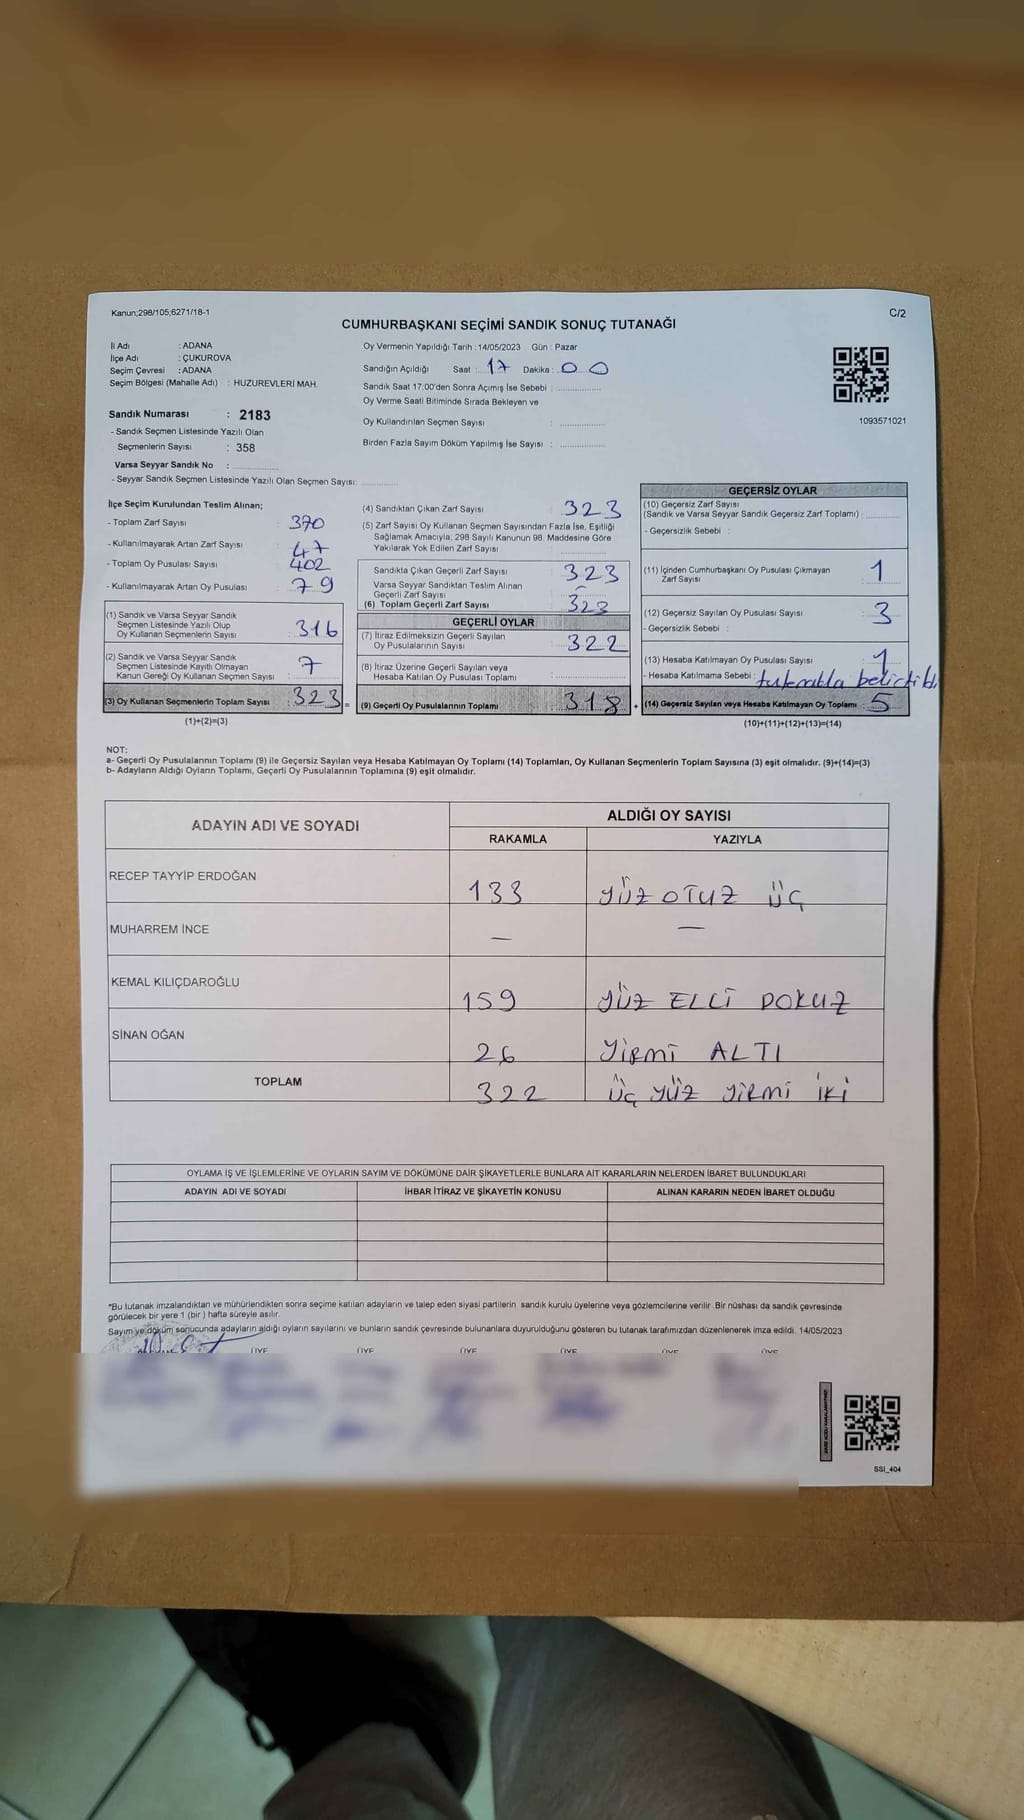 Kanun;298/105,6271/18-1
C/2
CUMHURBAŞKANI SEÇİMİ SANDIK SONUÇ TUTANAĞI
İl Adı : ADANA
İlçe Adı : ÇUKUROVA
Seçim Çevresi : ADANA
Seçim Bölgesi (Mahalle Adı) : HUZUREVLERİ MAH.
Sandık Numarası : 2183
- Sandık Seçmen Listesinde Yazılı Olan
Seçmenlerin Sayısı : 358
Varsa Seyyar Sandık No :
- Seyyar Sandık Seçmen Listesinde Yazılı Olan Seçmen Sayısı:
Oy Vermenin Yapıldığı Tarih : 14/05/2023 Gün : Pazar
Sandığın Açıldığı Saat : 17 Dakika : 00
Sandık Saat 17:00'den Sonra Açımış İse Sebebi :
Oy Verme Saati Bitiminde Sırada Bekleyen ve
Oy Kullandırılan Seçmen Sayısı :
Birden Fazla Sayım Döküm Yapılmış İse Sayısı :
1093571021
İlçe Seçim Kurulundan Teslim Alınan;
- Toplam Zarf Sayısı : 370
- Kullanılmayarak Artan Zarf Sayısı : 47
- Toplam Oy Pusulası Sayısı : 402
- Kullanılmayarak Artan Oy Pusulası : 79
(1) Sandık ve Varsa Seyyar Sandık
Seçmen Listesinde Yazılı Olup
Oy Kullanan Seçmenlerin Sayısı : 316
(2) Sandık ve Varsa Seyyar Sandık
Seçmen Listesinde Kayıtlı Olmayan
Kanun Gereği Oy Kullanan Seçmen Sayısı : 7
(3) Oy Kullanan Seçmenlerin Toplam Sayısı : 323 =
(1)+(2)=(3)
(4) Sandıktan Çıkan Zarf Sayısı : 323
(5) Zarf Sayısı Oy Kullanan Seçmen Sayısından Fazla İse, Eşitliği
Sağlamak Amacıyla, 298 Sayılı Kanunun 98. Maddesine Göre
Yakılarak Yok Edilen Zarf Sayısı :
Sandıkta Çıkan Geçerli Zarf Sayısı : 323
Varsa Seyyar Sandıktan Teslim Alınan
Geçerli Zarf Sayısı : -
(6) Toplam Geçerli Zarf Sayısı : 323
GEÇERLİ OYLAR
(7) İtiraz Edilmeksizin Geçerli Sayılan
Oy Pusulalarının Sayısı : 322
(8) İtiraz Üzerine Geçerli Sayılan veya
Hesaba Katılan Oy Pusulası Toplamı :
(9) Geçerli Oy Pusulalarının Toplamı : 318 +
GEÇERSİZ OYLAR
(10) Geçersiz Zarf Sayısı
(Sandık ve Varsa Seyyar Sandık Geçersiz Zarf Toplamı) :
- Geçersizlik Sebebi :
(11) İçinden Cumhurbaşkanı Oy Pusulası Çıkmayan
Zarf Sayısı : 1
(12) Geçersiz Sayılan Oy Pusulası Sayısı : 3
- Geçersizlik Sebebi :
(13) Hesaba Katılmayan Oy Pusulası Sayısı : 1
- Hesaba Katılmama Sebebi : tutanakla belirtildi
(14) Geçersiz Sayılan veya Hesaba Katılmayan Oy Toplamı : 5
(10)+(11)+(12)+(13)=(14)
NOT:
a- Geçerli Oy Pusulalarının Toplamı (9) ile Geçersiz Sayılan veya Hesaba Katılmayan Oy Toplamı (14) Toplamları, Oy Kullanan Seçmenlerin Toplam Sayısına (3) eşit olmalıdır. (9)+(14)=(3)
b- Adayların Aldığı Oyların Toplamı, Geçerli Oy Pusulalarının Toplamına (9) eşit olmalıdır.
ADAYIN ADI VE SOYADI
ALDIĞI OY SAYISI
RAKAMLA YAZIYLA
RECEP TAYYİP ERDOĞAN 133 YÜZ OTUZ ÜÇ
MUHARREM İNCE — —
KEMAL KILIÇDAROĞLU 159 YÜZ ELLİ DOKUZ
SİNAN OĞAN 26 YİRMİ ALTI
TOPLAM 322 ÜÇ YÜZ YİRMİ İKİ
OYLAMA İŞ VE İŞLEMLERİNE VE OYLARIN SAYIM VE DÖKÜMÜNE DAİR ŞİKAYETLERLE BUNLARA AİT KARARLARIN NELERDEN İBARET BULUNDUKLARI
ADAYIN ADI VE SOYADI İHBAR İTİRAZ VE ŞİKAYETİN KONUSU ALINAN KARARIN NEDEN İBARET OLDUĞU
*Bu tutanak imzalandıktan ve mühürlendikten sonra seçime katılan adayların ve talep eden siyasi partilerin sandık kurulu üyelerine veya gözlemcilerine verilir. Bir nüshası da sandık çevresinde
görülecek bir yere 1 (bir) hafta süreyle asılır.
Sayım ve döküm sonucunda adayların aldığı oyların sayılarını ve bunların sandık çevresinde bulunanlara duyurulduğunu gösteren bu tutanak tarafımızdan düzenlenerek imza edildi. 14/05/2023
ÜYE ÜYE ÜYE ÜYE ÜYE ÜYE
SSI_404